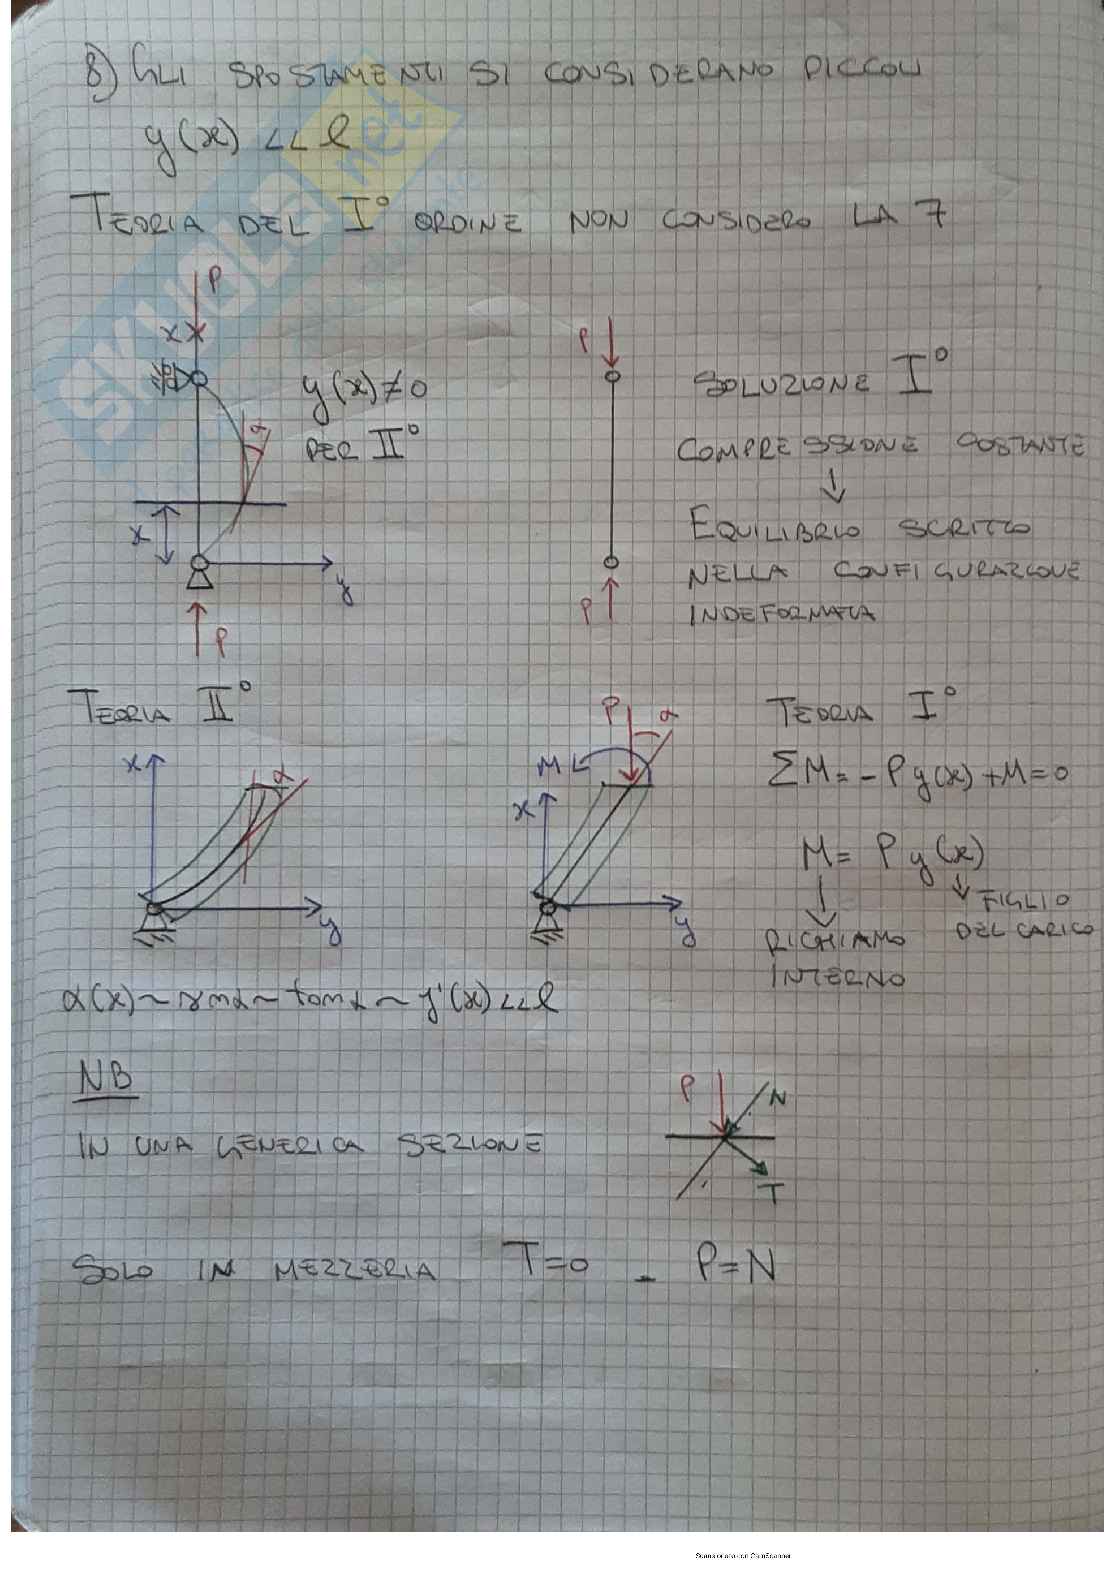 8) GLI SPOSTAMENTI SI CONSIDERANO PICCOLI
y(x) << l
TEORIA DEL I° ORDINE NON CONSIDERO LA 7
P
X
y(x)≠0
PER II°
α
X
y
P
P
SOLUZIONE I°
COMPRESSIONE COSTANTE
↓
EQUILIBRIO SCRITTO
NELLA CONFIGURAZIONE
INDEFORMATA
P
TEORIA II°
x
α
y
P
α
M
x
y
TEORIA I°
ΣM = -Py(x) + M = 0
M = P y(x)
↓ FIGLIO
DEL CARICO
↓
RICHIAMO
INTERNO
α(x) ~ sen α ~ tan α ~ y'(x) << l
NB
IN UNA GENERICA SEZIONE
P
N
T
SOLO IN MEZZERIA T=0 - P=N
SKUOLA.net
Scansionato con CamScanner